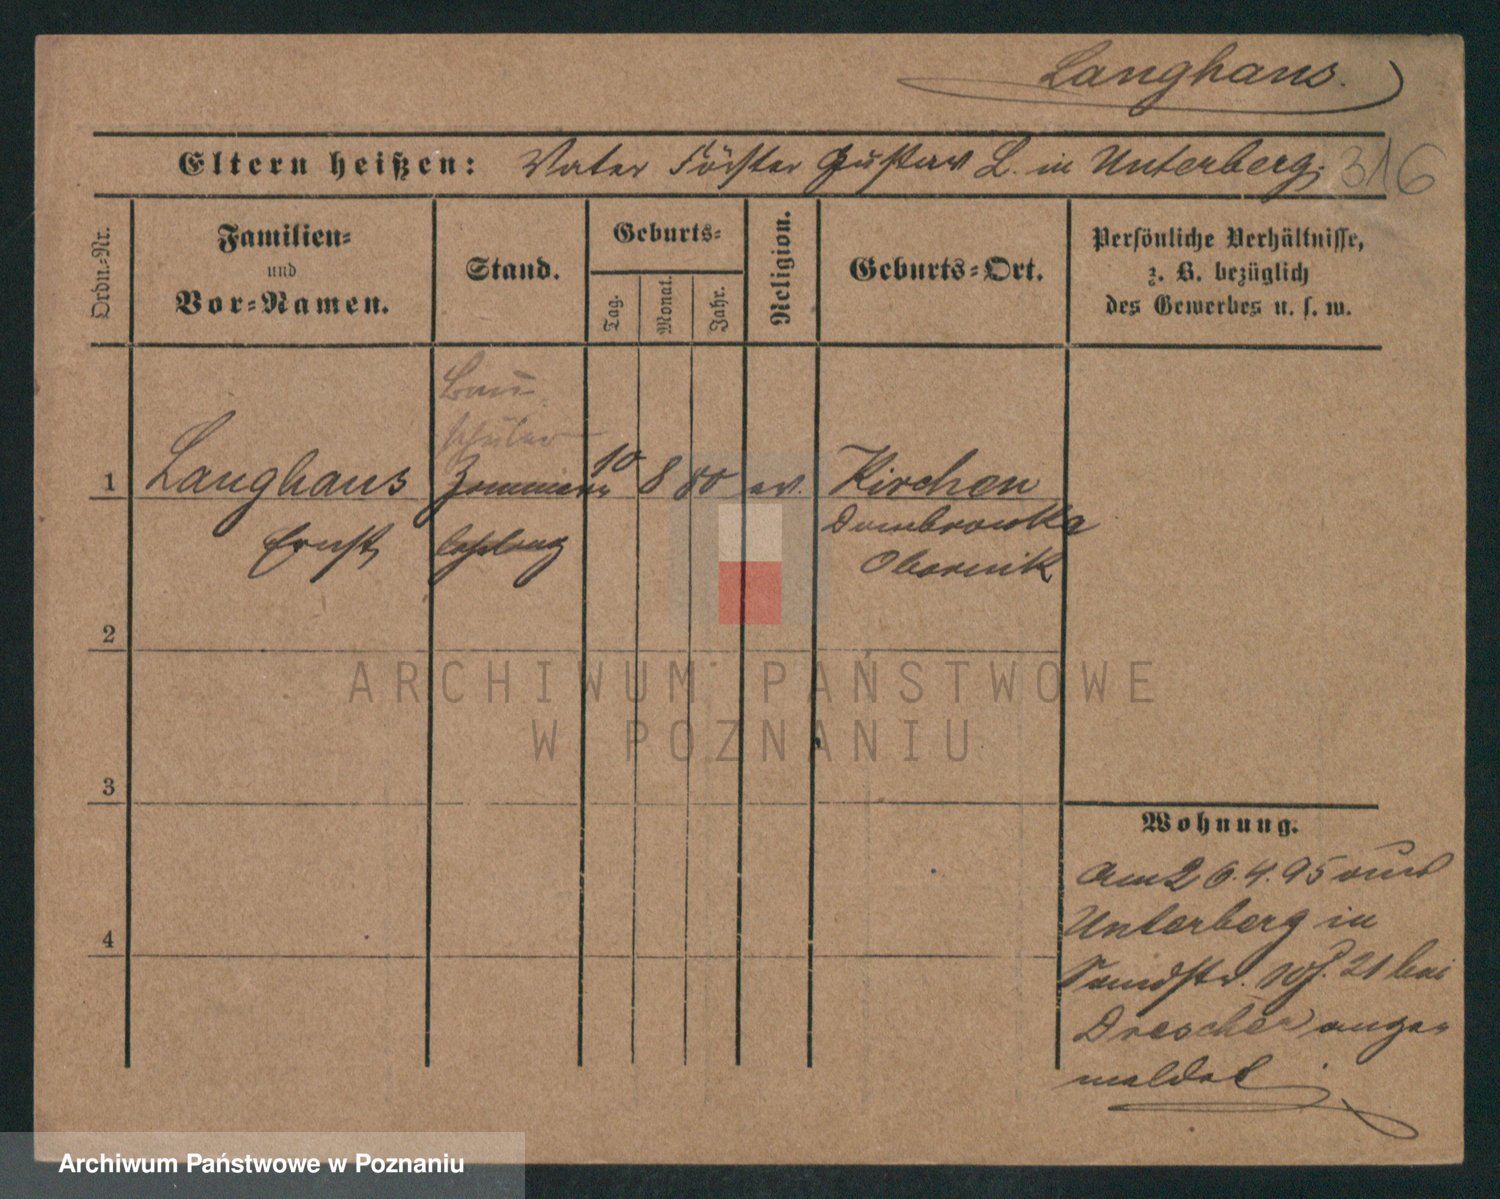 Langhans.
Eltern heißen: Vater Förster Gustav L. in Unterberg.
316
Ordn.-Nr.
Familien-
und
Vor-Namen.
Stand.
Geburts-
Tag.
Monat.
Jahr.
Religion.
Geburts-Ort.
Persönliche Verhältnisse,
z. B. bezüglich
des Gewerbes u. s. w.
Bau
schüler
1 Langhans Zimmer 10 8 80 ev. Kirchen
Ernst lehrling Dombrowka
Obornik
2
ARCHIWUM PAŃSTWOWE
W POZNANIU
3
Wohnung.
am 26.4.95 aus
4
Unterberg in
21 bei
Drescher ange-
meldet
Archiwum Państwowe w Poznaniu